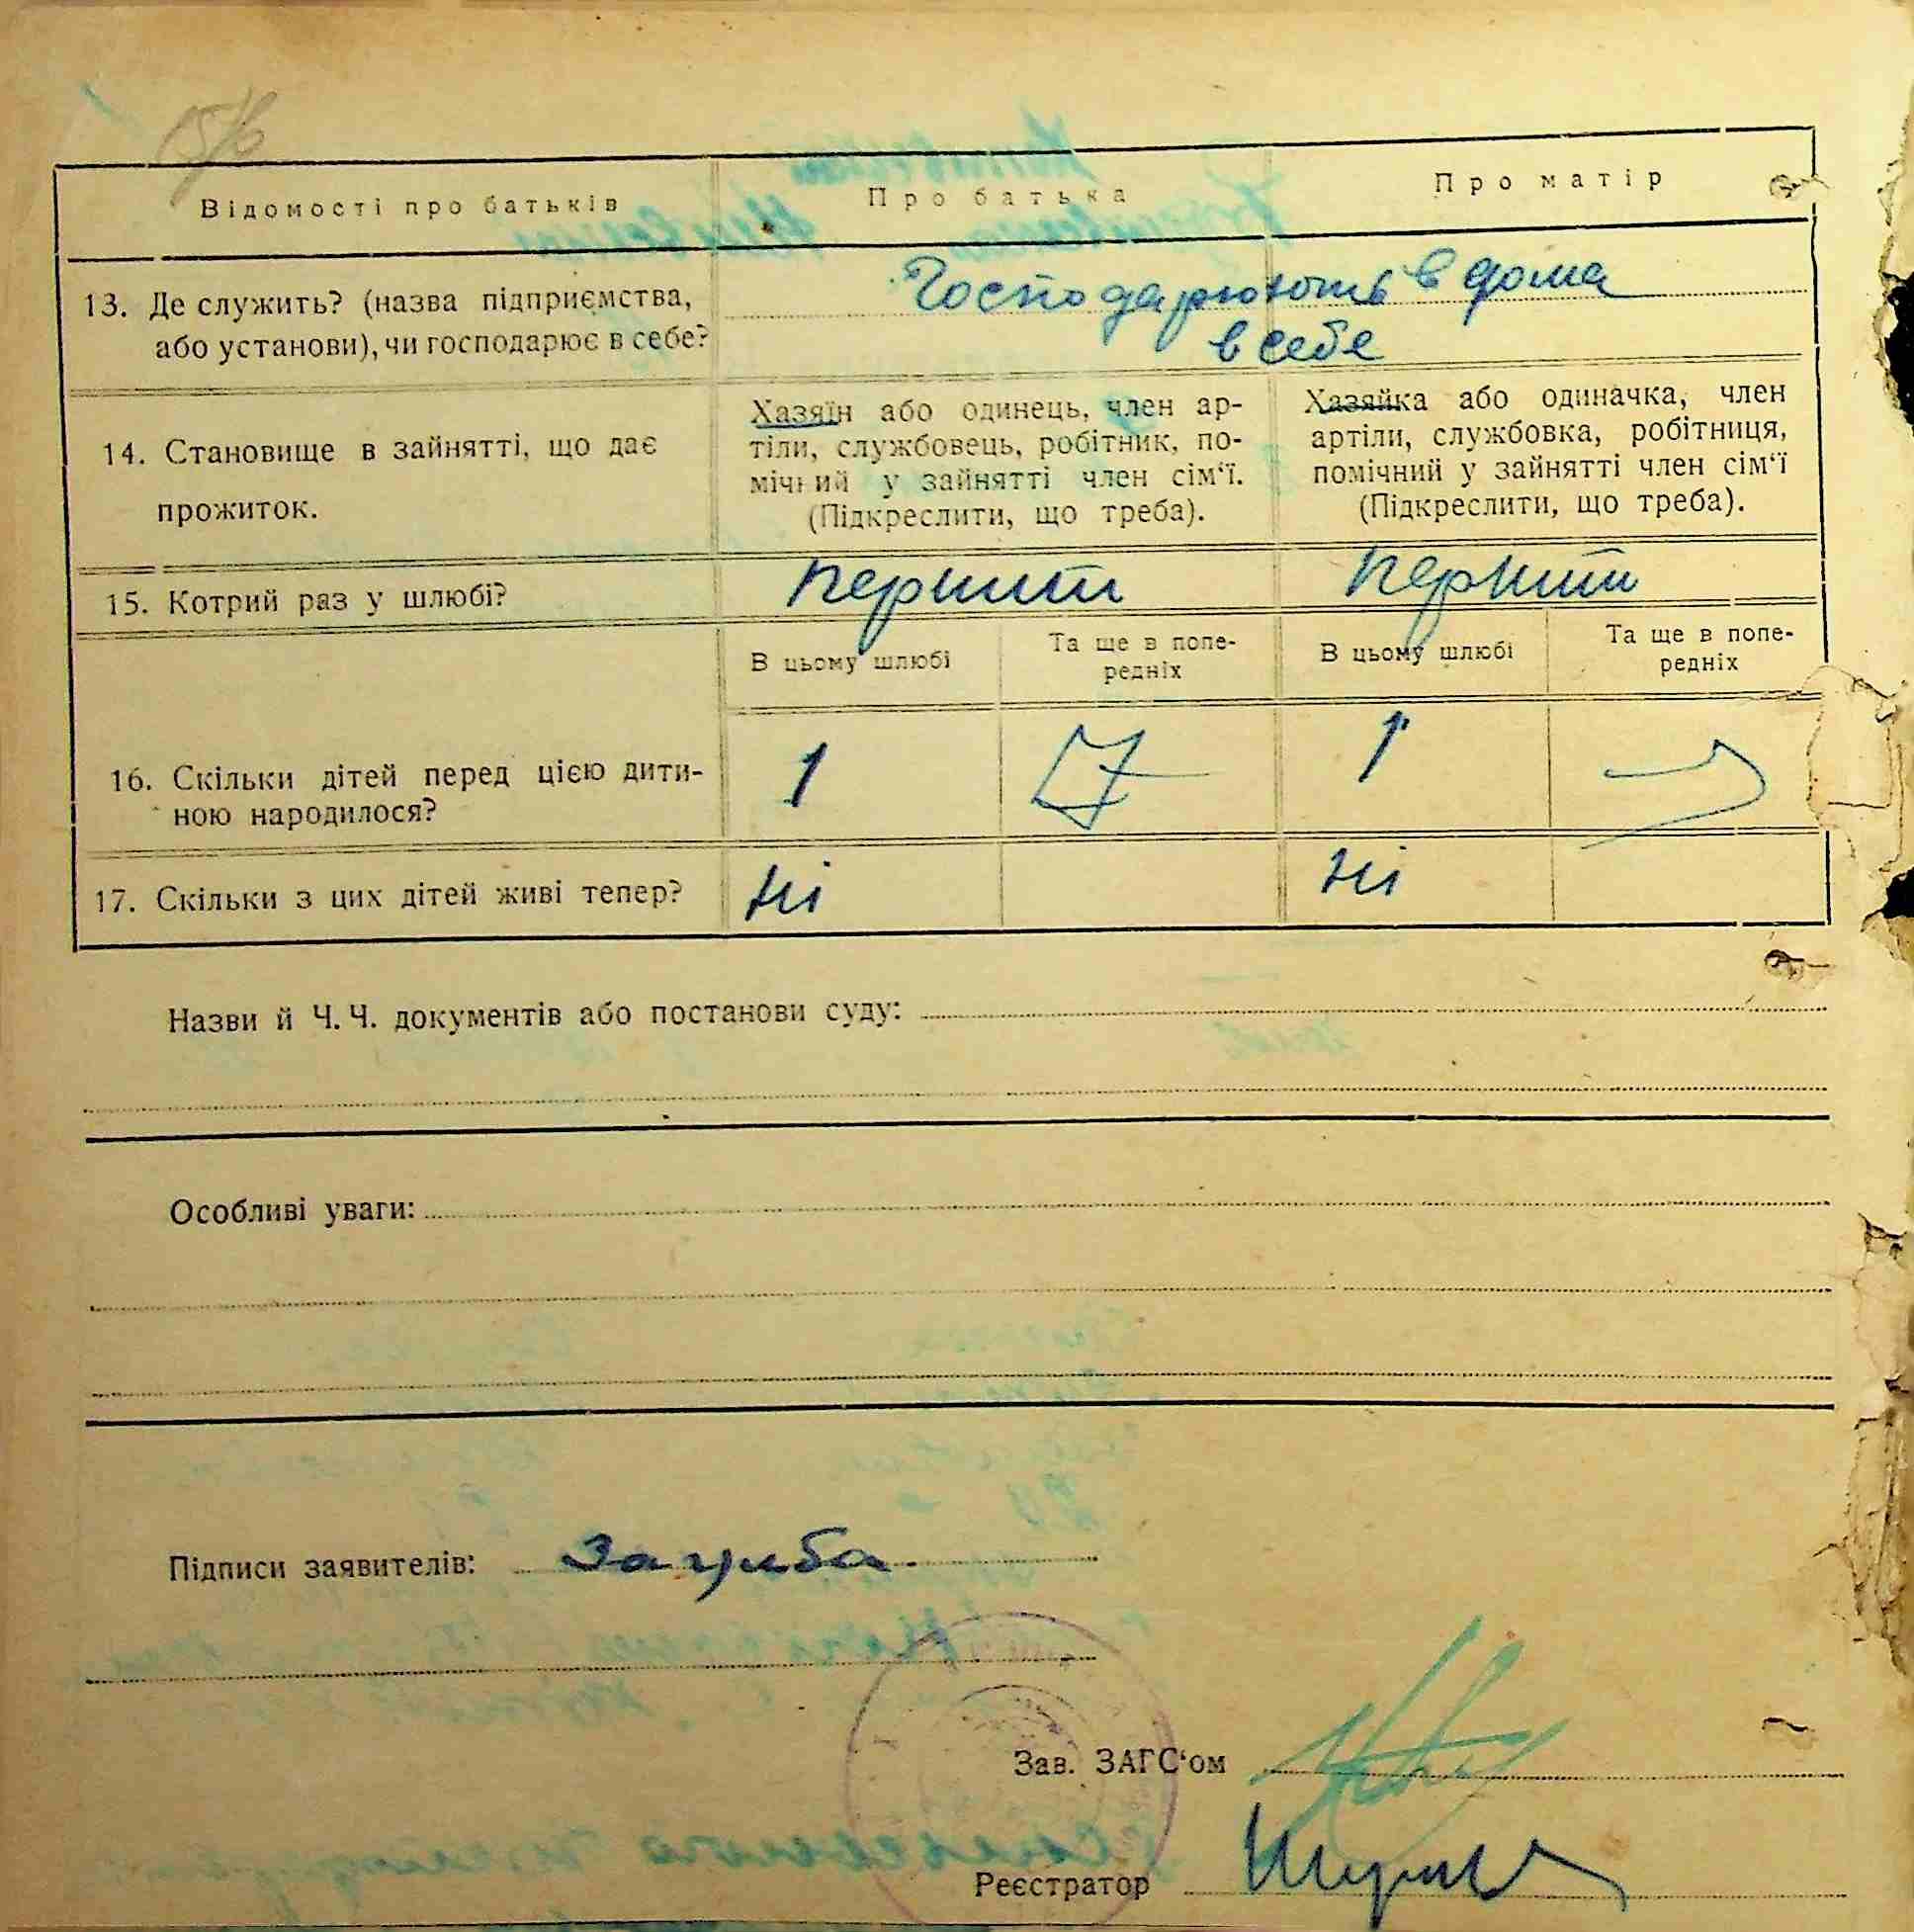 Відомості про батьків
Про батька
Про матір
13. Де служить? (назва підприємства,
або установи), чи господарює в себе?
Господарюють в дома
в себе
14. Становище в зайнятті, що дає
прожиток.
Хазяїн або одинець, член ар-
тіли, службовець, робітник, по-
мічний у зайнятті член сім‘ї.
(Підкреслити, що треба).
Хазяйка або одиначка, член
артіли, службовка, робітниця,
помічний у зайнятті член сім‘ї
(Підкреслити, що треба).
15. Котрий раз у шлюбі?
перший
перший
В цьому шлюбі
Та ще в попе-
редніх
В цьому шлюбі
Та ще в попе-
редніх
16. Скільки дітей перед цією дити-
ною народилося?
1
1
17. Скільки з цих дітей живі тепер?
ні
ні
Назви й Ч. Ч. документів або постанови суду:
Особливі уваги:
Підписи заявителів:
Зав. ЗАГС‘ом
Реєстратор